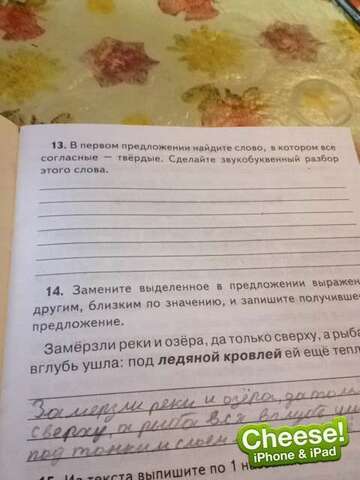 13. В первом предложении найдите слово, в котором все
согласные — твёрдые. Сделайте звукобуквенный разбор
этого слова.
14. Замените выделенное в предложении выражен
другим, близким по значению, и запишите получивше
предложение.
Замёрзли реки и озёра, да только сверху, а рыба
вглубь ушла: под ледяной кровлей ей ещё тепл
Замерзли реки и озёра, да тол
сверху, а рыба вся вглубь уш
под тонким слоем
15. Из текста выпишите по 1
Cheese!
iPhone & iPad